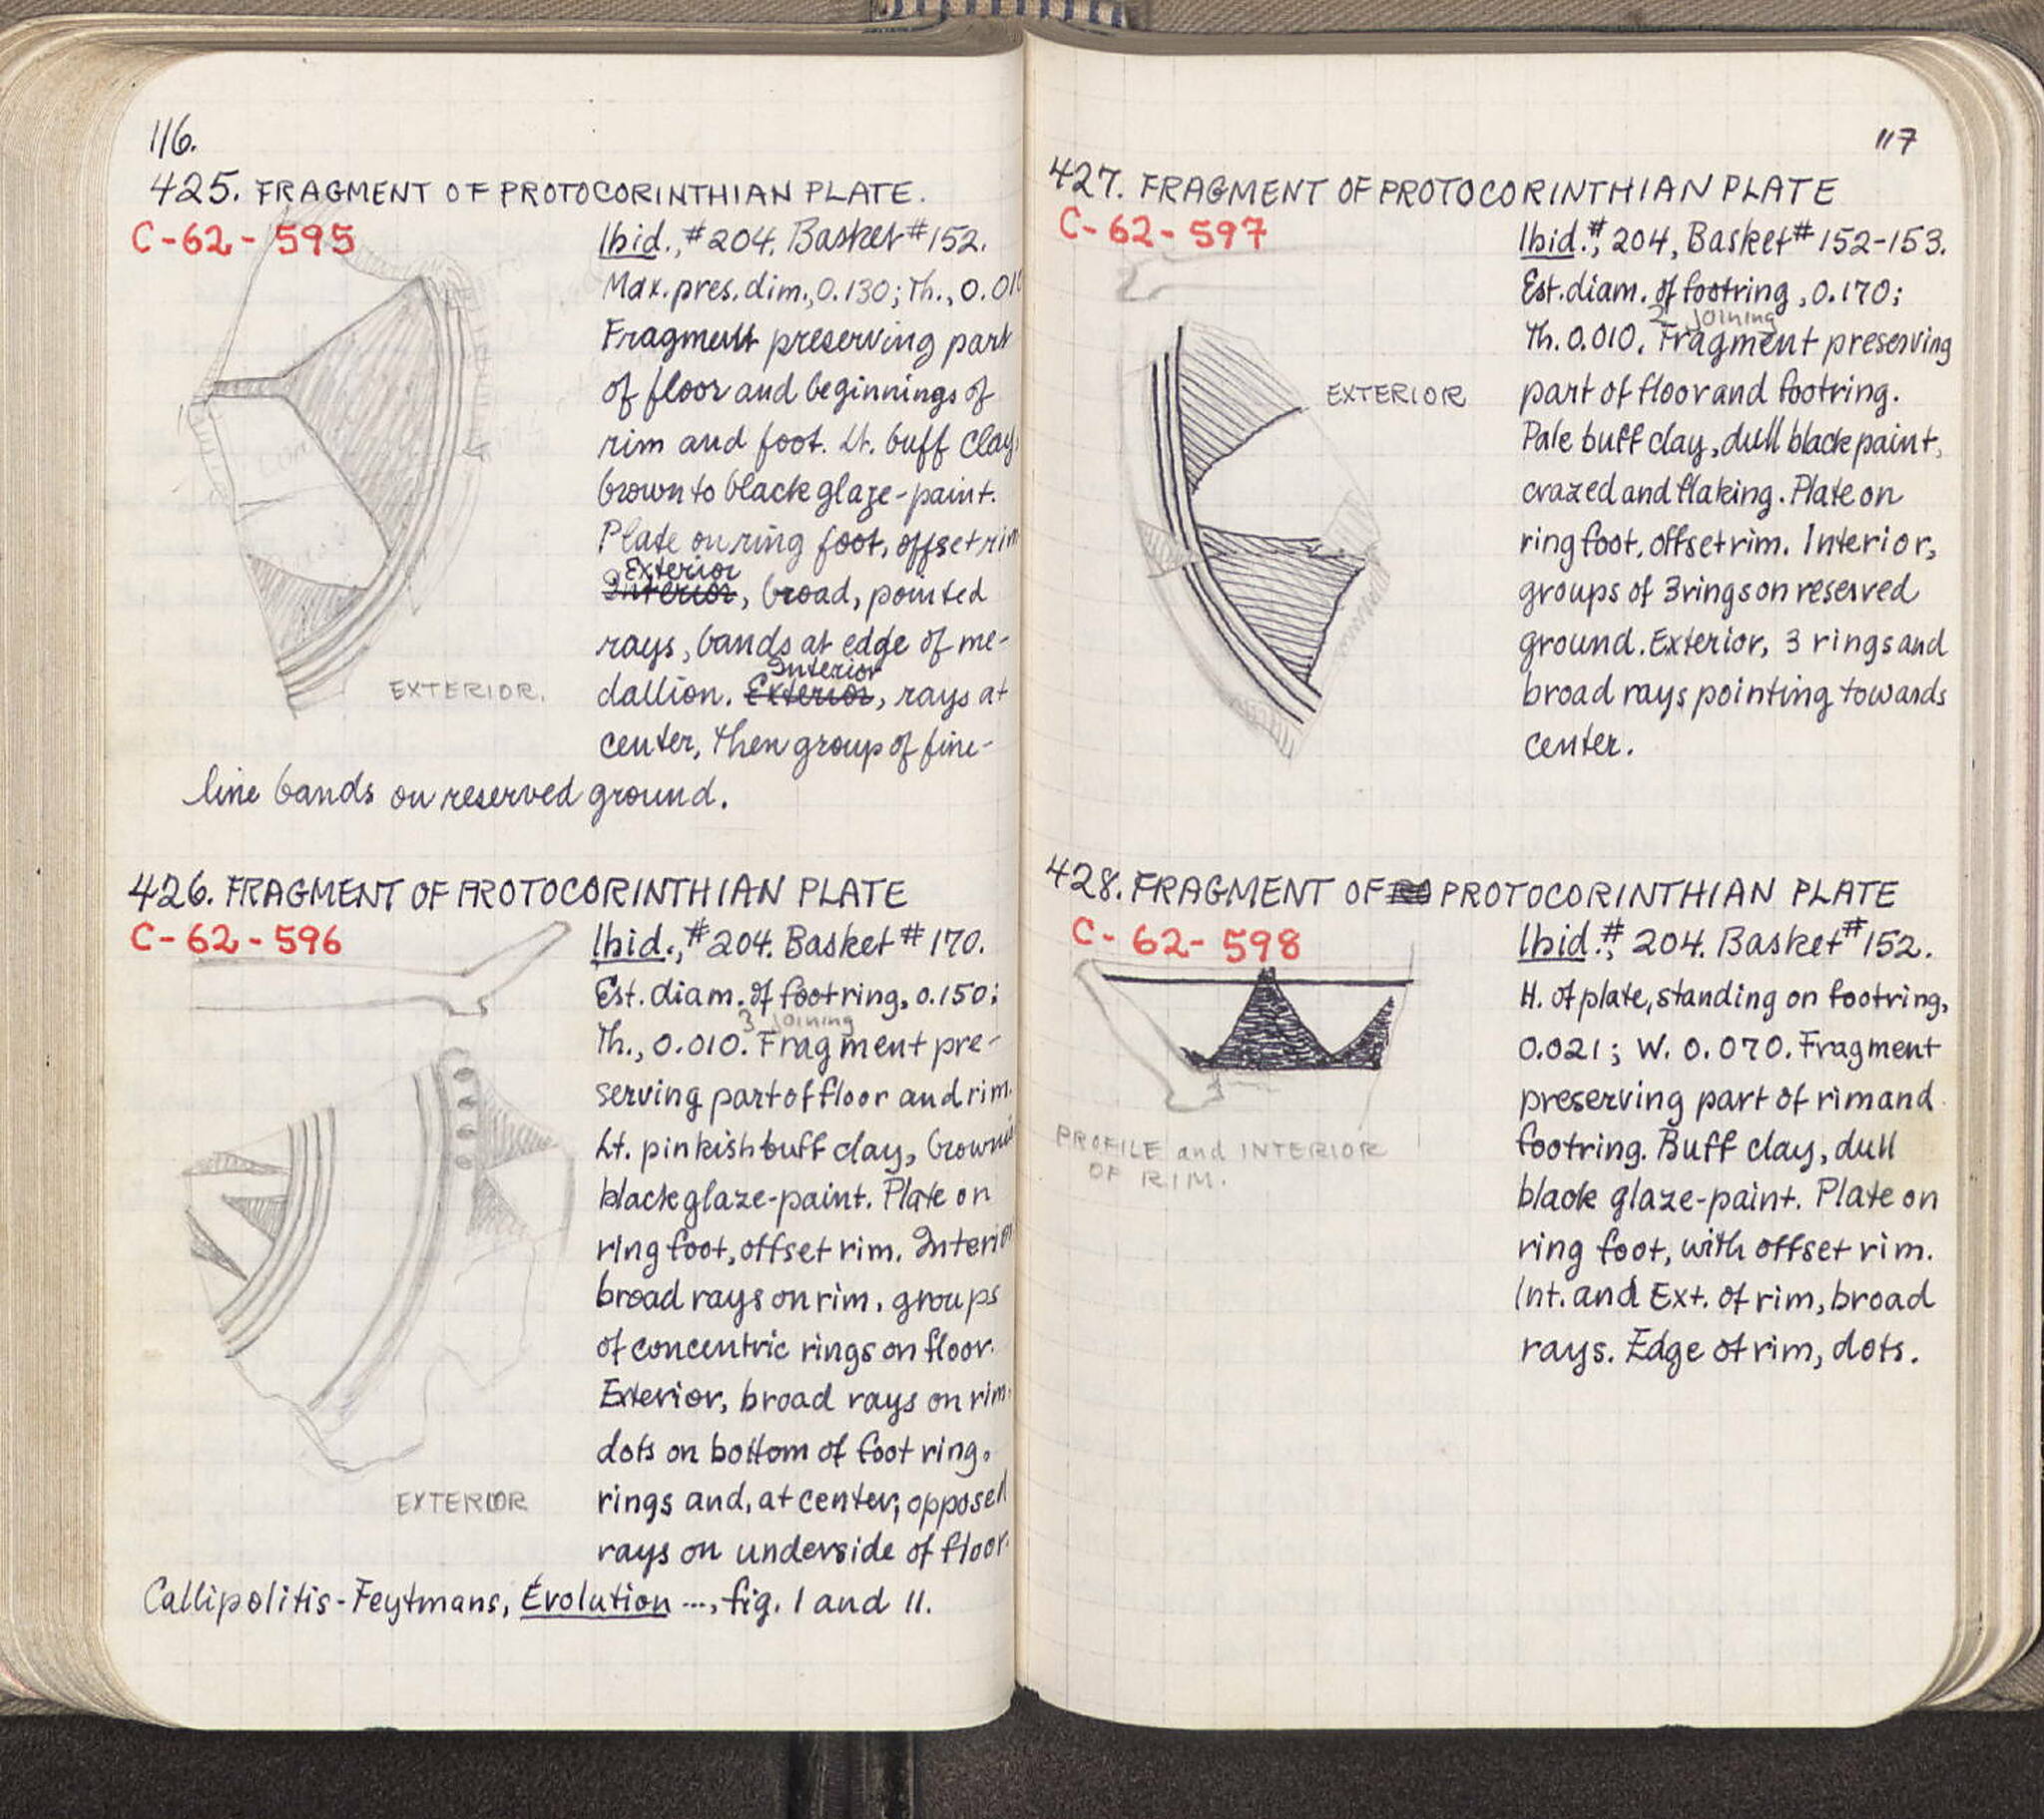 116.
425. FRAGMENT OF PROTOCORINTHIAN PLATE.
C-62-595
Ibid., #204. Basket #152.
Max. pres. dim., 0.130; Th., 0.010
Fragment preserving part
of floor and beginnings of
rim and foot. Lt. buff clay,
brown to black glaze-paint.
Plate on ring foot, offset rim
Exterior
Interior, broad, pointed
rays, bands at edge of me-
Interior
dallion. Exterior, rays at
center, then group of fine-
line bands on reserved ground.
EXTERIOR.
426. FRAGMENT OF PROTOCORINTHIAN PLATE
C-62-596
Ibid., #204. Basket #170.
Est. diam. of footring, 0.150;
3 joining
Th., 0.010. Fragment pre-
serving part of floor and rim.
Lt. pinkish buff clay, brownish
black glaze-paint. Plate on
ring foot, offset rim. Interior
broad rays on rim, groups
of concentric rings on floor.
Exterior, broad rays on rim,
dots on bottom of foot ring,
rings and, at center, opposed
rays on underside of floor.
EXTERIOR
Callipolitis-Feytmans, Évolution ..., fig. 1 and 11.
117
427. FRAGMENT OF PROTOCORINTHIAN PLATE
C-62-597
Ibid., # 204, Basket # 152-153.
Est. diam. of footring, 0.170;
2 joining
Th. 0.010. Fragment preserving
part of floor and footring.
Pale buff clay, dull black paint,
crazed and flaking. Plate on
ring foot, offset rim. Interior,
groups of 3 rings on reserved
ground. Exterior, 3 rings and
broad rays pointing towards
center.
EXTERIOR
428. FRAGMENT OF PROTOCORINTHIAN PLATE
C-62-598
Ibid., # 204. Basket #152.
H. of plate, standing on footring,
0.021; W. 0.070. Fragment
preserving part of rim and
footring. Buff clay, dull
black glaze-paint. Plate on
ring foot, with offset rim.
Int. and Ext. of rim, broad
rays. Edge of rim, dots.
PROFILE and INTERIOR
OF RIM.